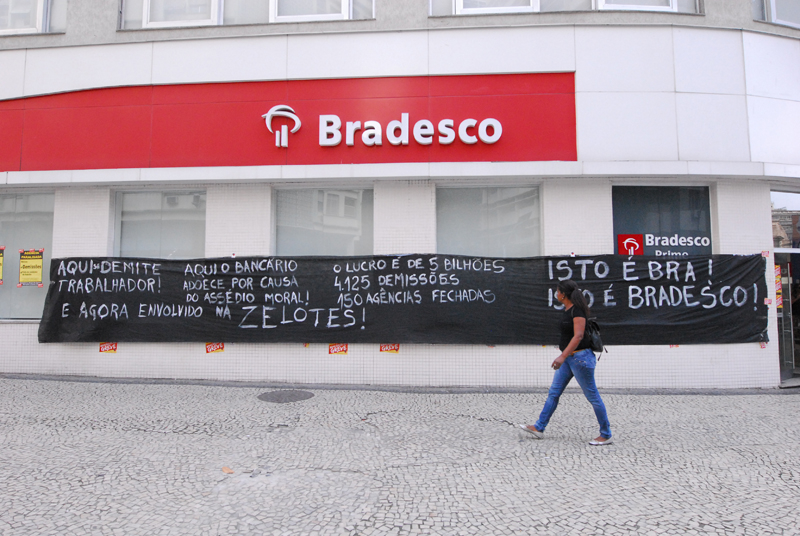 Bradesco
Bradesco
Prime
AQUI SE DEMITE
TRABALHADOR!
E AGORA ENVOLVIDO NA ZELOTES!
AQUI O BANCÁRIO
ADOECE POR CAUSA
DO ASSÉDIO MORAL!
O LUCRO É DE 5 BILHÕES
4.125 DEMISSÕES
150 AGÊNCIAS FECHADAS
ISTO É BRA!
ISTO É BRADESCO!